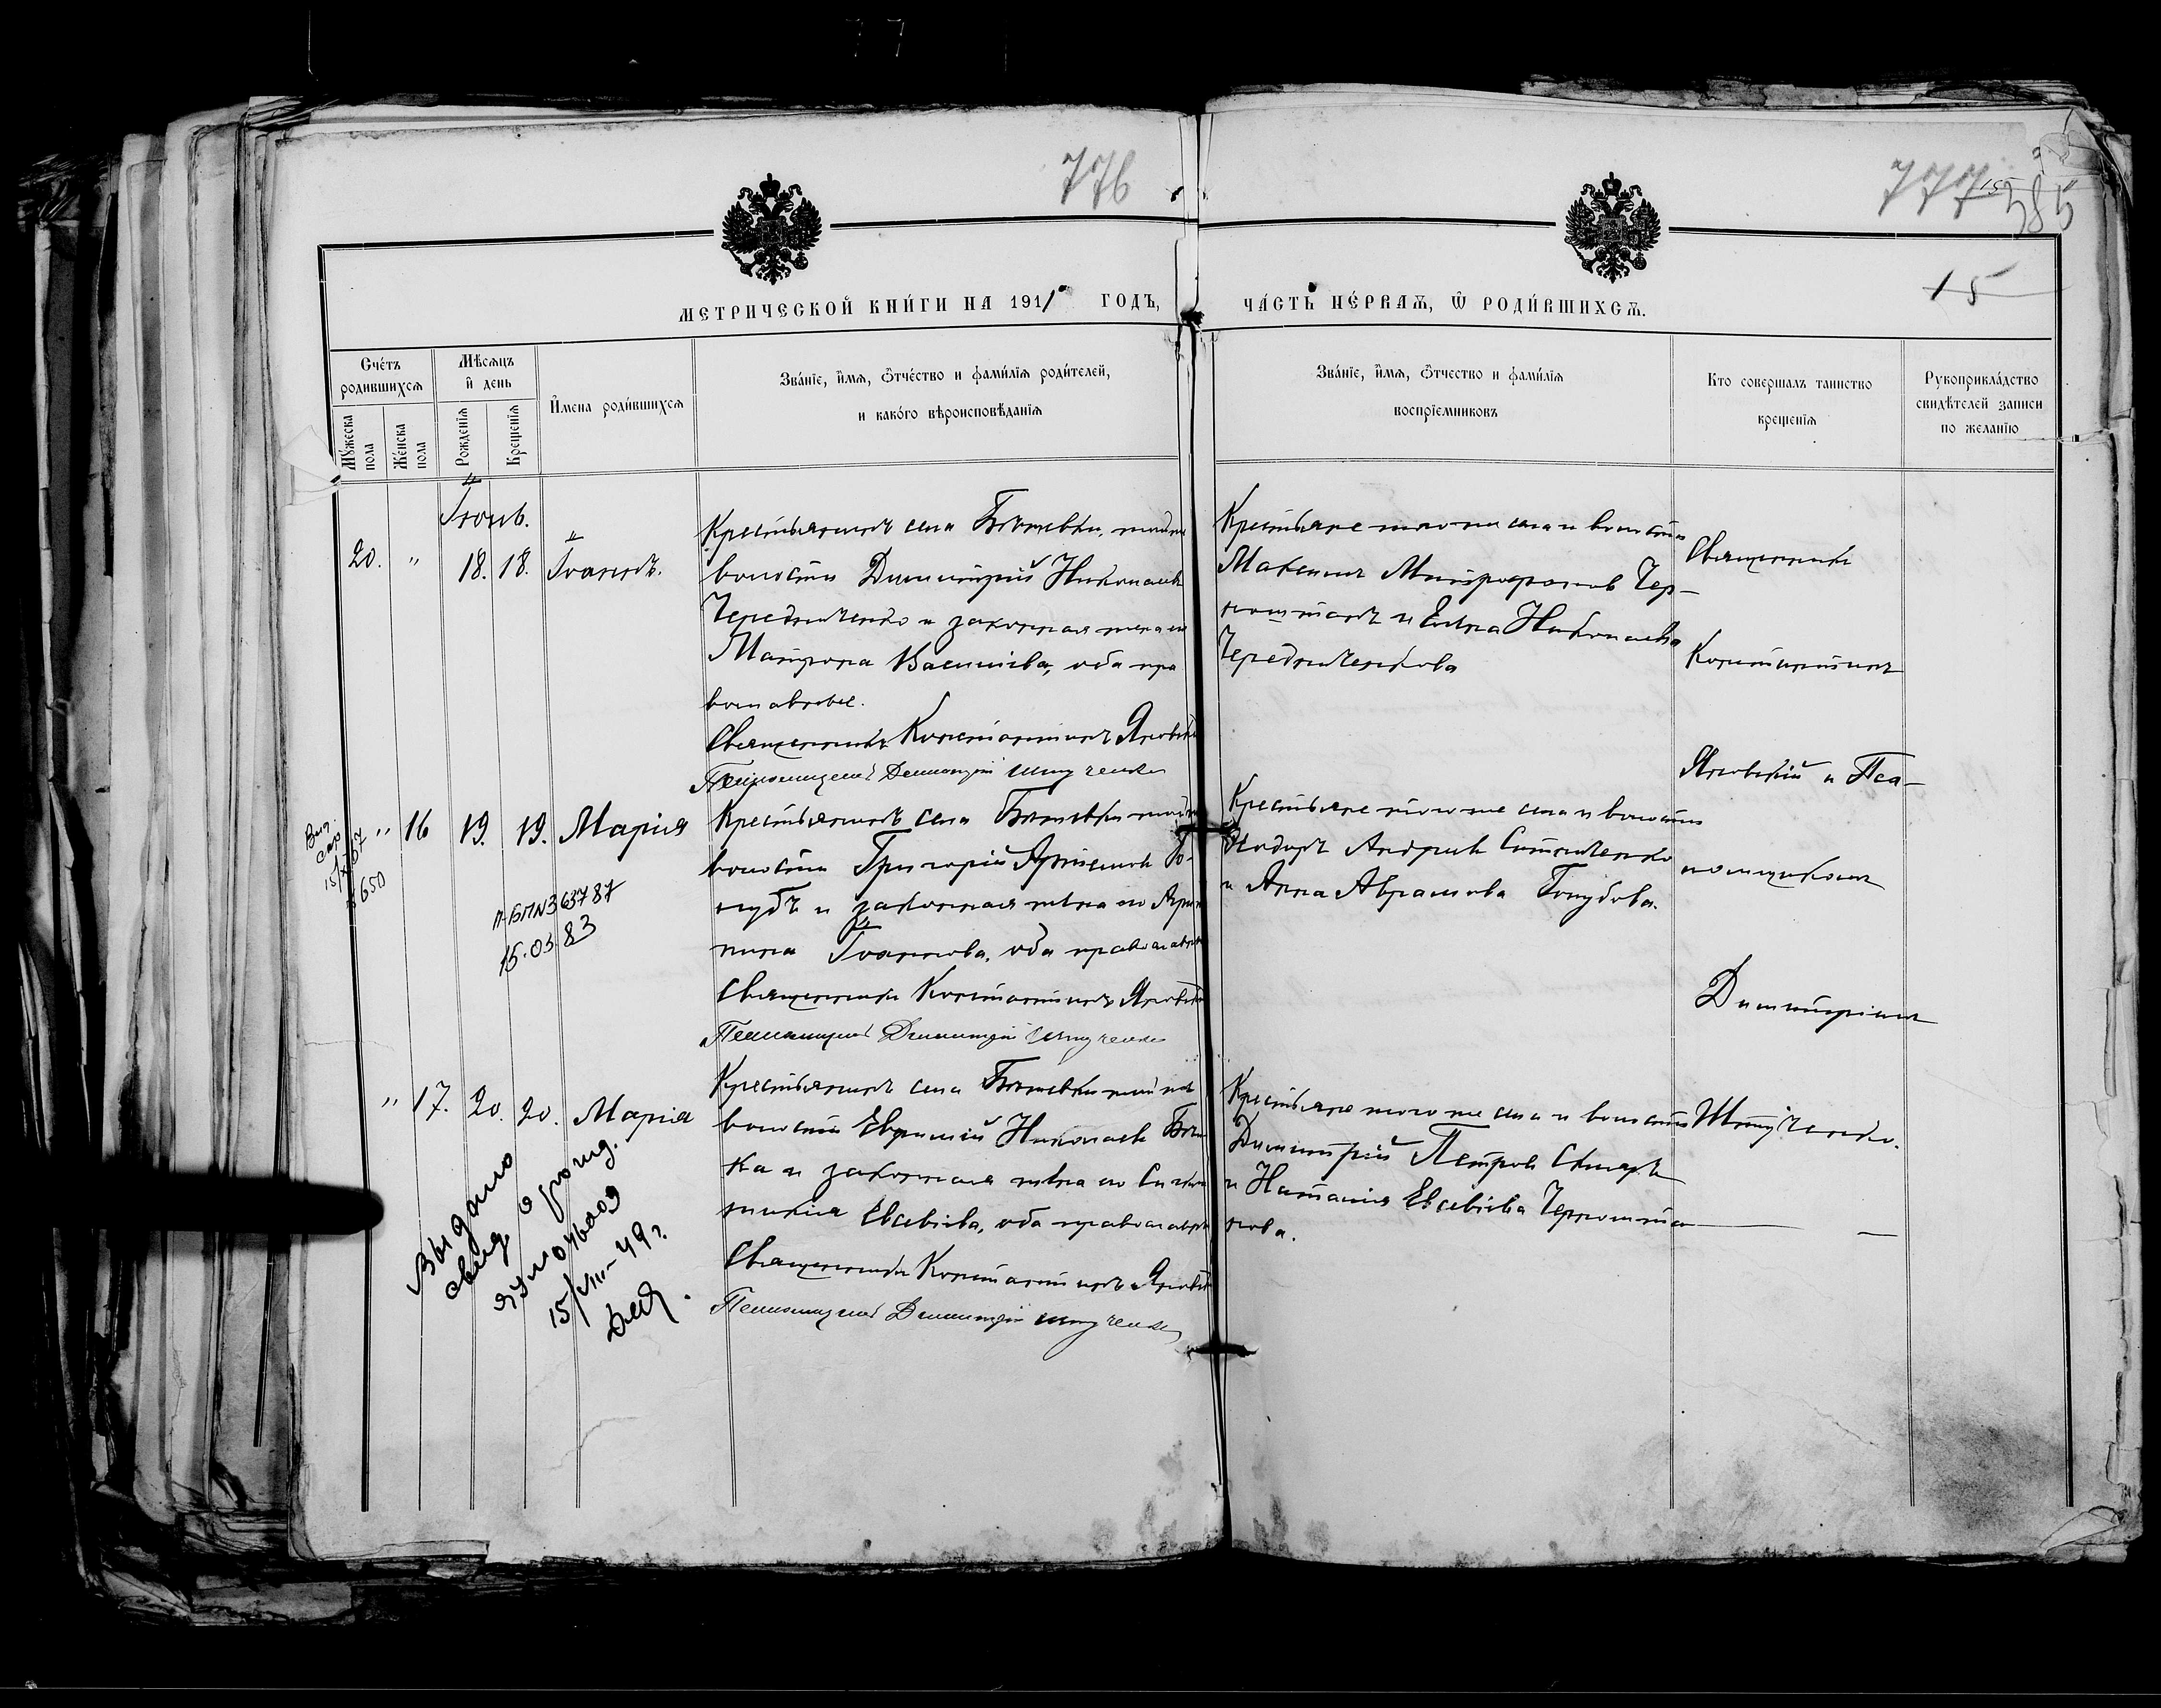 776
777
585
15
МЕТРИЧЕСКОЙ КНИГИ НА 1911 ГОДЪ,
ЧАСТЬ ПЕРВАЯ, Ѿ РОДИВШИХСЯ.
Счетъ родившихся
Мѣсяцъ и день
Мужеска пола
Женска пола
Рожденія
Крещенія
Имена родившихся
Званіе, имя, ѿчество и фамилія родителей,
и какого вѣроисповѣданія
Званіе, имя, ѿчество и фамилія
воспріемниковъ
Кто совершалъ таинство
крещенія
Рукоприкладство
свидѣтелей записи
по желанію
Іюнь.
20. " 18. 18. Іоаннъ.
Крестьянинъ села
волости Димитрій Николаевъ
Чередниченко и законная жена его
Матрона Василіева, оба пра
вославные.
Священникъ Константинъ Яновскій
Псаломщикъ Димитрій Штученко
Крестьяне того же села и волости
Максимъ Митрофановъ Чер-
ноштанъ и Елена Николаева
Чередниченкова
Священникъ
Константинъ
Яновскій и Пса-
ломщикомъ
Димитріемъ
Штученко.
" 16 19. 19. Марія
Крестьянинъ села
волости Григорій Артемовъ Го-
лубъ и законная жена его
Іоаннова, оба православные
Священникъ Константинъ Яновскій
Псаломщикъ Димитрій Штученко
Крестьяне того же села и волости
Андреевъ
и Анна Аврамова Голубова.
15.03.83
" 17. 20. 20. Марія
Крестьянинъ села
волости Евфимій Николаевъ
ка и законная жена его Синкли
тикія Евсевіева, оба православные
Священникъ Константинъ Яновскій
Псаломщикъ Димитрій Штученко
Крестьяне того же села и волости
Димитрій Петровъ Скляръ
и Наталія Евсевіева Черношта
нова.
Выдано
свид о рожд.
15/VIII-49 г.